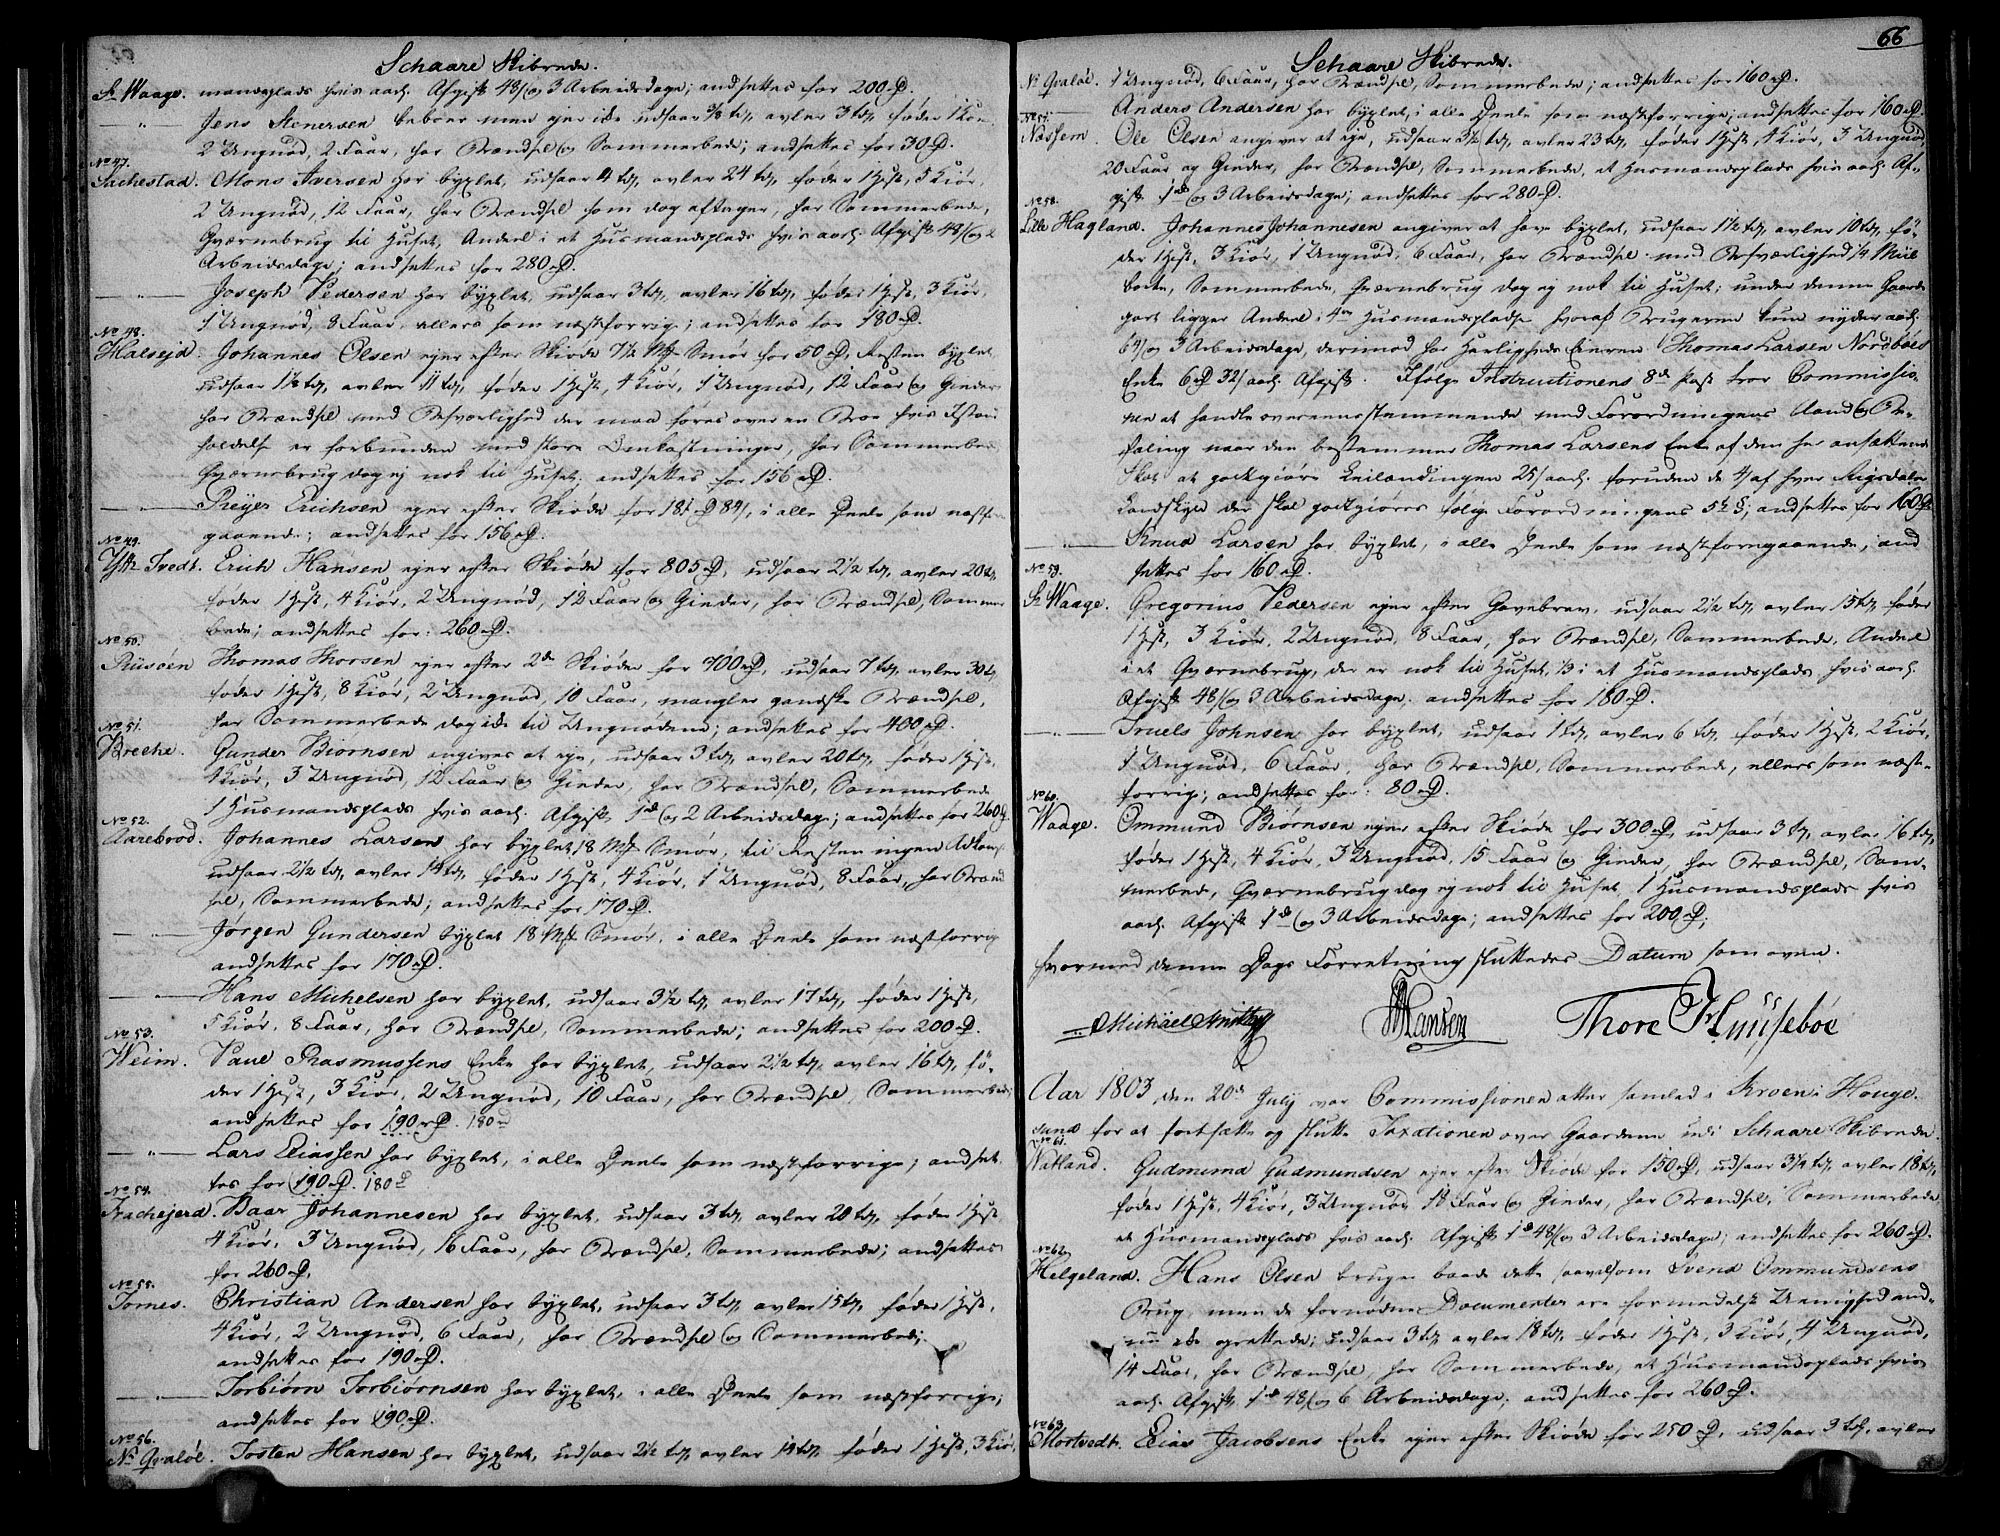 Schaare Skibrede.
Sr Waage. mandsplads hvis aarl. Afgift 48/ og 3 Arbeidsdage; andsettes for 200 rD.
— " — Jens Stenersen beboer men ejer ikke udsaar 3/8 td, avler 3 td, føder 1 Koe
2 Ungnød, 2 Faar, har Brændsel og Sommerbede; andsettes for 30 rD.
No 47.
Sachestad. Mons Iversen har byxlet, udsaar 4 td, avler 24 td, føder 1 Hest, 5 Kiør,
2 Ungnød, 12 Faar, har Brændsel som dog aftager, har Sommerbede,
Qværnebrug til Huset, Andeel i et Husmandsplads hvis aarl. Afgift 48/ og 2
Arbeidsdage; andsettes for 280 rD.
— " — Joseph Pedersen har byxlet, udsaar 3 td, avler 16 td, føder 1 Hest, 3 Kiør,
1 Ungnød, 8 Faar, ellers som næstforrige; andsettes for 180 rD.
No 48.
Halsejd. Johannes Olsen ejer efter Skiøde 7 1/2 Mk Smør for 50 rD, Resten byxlet,
udsaar 1 1/2 td, avler 11 td, føder 1 Hest, 4 Kiør, 1 Ungnød, 12 Faar og Gieder
har Brændsel med Besværlighed der maa føres over en Broe hvis Istand
holdelse er forbunden med store Omkostninger, har Sommerbede
Qværnebrug dog ej nok til Huset; andsettes for 156 rD.
— " — Reyer Erichsen ejer efter Skiøde for 181 rD 84/, i alle Deele som næstfore
gaaende; andsettes for 156 rD.
No 49.
Yttr Tvedt. Erich Hansen ejer efter Skiøde for 805 rD, udsaar 2 1/2 td, avler 20 td,
føder 1 Hest, 4 Kiør, 2 Ungnød, 12 Faar og Gieder, har Brændsel, Sommer
bede; andsettes for 260 rD.
No 50.
Thomas Thorsen ejer efter 2de Skiøder for 700 rD, udsaar 7 td, avler 30 td,
føder 1 Hest, 8 Kiør, 2 Ungnød, 10 Faar, mangler gandske Brændsel,
har Sommerbede dog ikke til Ungnødene; andsettes for 400 rD.
No 51.
Breche. Gunder Biørnsen angives at eje, udsaar 3 td, avler 20 td, føder 1 Hest,
4 Kiør, 3 Ungnød, 12 Faar og Gieder, har Brændsel, Sommerbede
1 Husmandsplads hvis aarl. Afgift 1 rd og 2 Arbeidsdage; andsettes for 260 rD.
No 52.
Aarebrod. Johannes Larsen har byxlet 18 Mk Smør, til Resten ingen Adkomst
udsaar 2 1/2 td, avler 14 td, føder 1 Hest, 4 Kiør, 1 Ungnød, 8 Faar, har Brænd
sel, Sommerbede; andsettes for 170 rD.
— " — Jørgen Gundersen byxlet 18 Mk Smør, i alle Deele som næstforrig
andsettes for 170 rD.
— " — Hans Michelsen har byxlet, udsaar 3 1/2 td, avler 17 td, føder 1 Hest,
5 Kiør, 8 Faar, har Brændsel, Sommerbede; andsettes for 200 rD.
No 53.
Weim. Paul Rasmussens Enke har byxlet, udsaar 2 1/2 td, avler 16 td, fø-
der 1 Hest, 3 Kiør, 2 Ungnød, 10 Faar, har Brændsel, Sommerbede;
andsettes for 190 rD. 180 rd
— " — Lars Eliassen har byxlet, i alle Deele som næstforrige; andset
tes for 190 rD. 180 D
No 54.
Trachejerd. Baar Johannesen har byxlet, udsaar 3 td, avler 20 td, føder 1 Hest
4 Kiør, 3 Ungnød, 16 Faar, har Brændsel, Sommerbede; andsettes
for 260 rD.
No 55.
Tornes. Christian Andersen har byxlet, udsaar 3 td, avler 15 td, føder 1 Hest,
4 Kiør, 2 Ungnød, 6 Faar, har Brændsel og Sommerbede;
andsettes for 190 rD.
— " — Torbiørn Torbiørnsen har byxlet, i alle Deele som næstforrige;
andsettes for 190 rD.
No 56.
Nr Qvaløe. Tosten Hansen har byxlet, udsaar 2 1/2 td, avler 14 td, føder 1 Hest, 3 Kiør,
66
Schaare Skibrede.
Nr Qvaløe. 1 Ungnød, 6 Faar, har Brændsel, Sommerbede; andsettes for 160 rD.
— " — Anders Andersen har byxlet, i alle Deele som næstforrige; andsettes for 160 rD.
No 57.
Nessem. Ole Olsen angiver at eje, udsaar 3 1/2 td, avler 23 td, føder 1 Hest, 4 Kiør, 3 Ungnød,
20 Faar og Gieder, har Brændsel, Sommerbede, et Husmandsplads hvis aarl. Af-
gift 1 rd og 3 Arbeidsdage; andsettes for 280 rD.
No 58.
Lille Hagland. Johannes Johannesen angiver at have byxlet, udsaar 1 1/2 td, avler 10 td, fø-
der 1 Hest, 3 Kiør, 1 Ungnød, 6 Faar, har Brændsel med Besværlighed 1/4 Miil
borte, Sommerbede, Qværnebrug dog ej nok til Huset; under denne Gaarde
part ligger Andeel i 4re Husmandspladse hvoraf Brugerne kun nyder aarl.
64/ og 3 Arbeidsdage, derimod har Herligheds Eieren Thomas Larsen Nordbøes
Enke 6 rD 32/ aarl. Afgift. Ifølge Instructionens 8de Post troer Commissio-
nen at handle overeensstemmende med Forordningens Aand og Be-
faling naar den bestemmer Thomas Larsens Enke af den her ansættende
Skat at godtgiøre Leilændingen 25/ aarl. foruden de 4/ af hver Rigsdaler
Landskyld der skal godtgiøres følge Forordningens 5te §; andsettes for 160 rD
— " — Knud Larsen har byxlet, i alle Deele som næstforegaaende, and
settes for 160 rD.
No 59.
Sr Waage. Gregorius Pedersen ejer efter Gavebrev, udsaar 2 1/2 td, avler 15 td, føder
1 Hest, 3 Kiør, 2 Ungnød, 8 Faar, har Brændsel, Sommerbede, Andeel
i et Qværnebrug, der er nok til Huset, 1/3 i et Husmandsplads, hvis aarl.
Afgift 48/ og 3 Arbeidsdage; andsettes for 180 rD.
— " — Truels Johnsen har byxlet, udsaar 1 td, avler 6 td, føder 1 Hest, 2 Kiør,
1 Ungnød, 6 Faar, har Brændsel, Sommerbede, ellers som næst-
forrige; andsettes for 80 rD.
No 60.
Waage. Ommund Biørnsen ejer efter Skiøde for 300 rD, udsaar 3 td, avler 16 td,
føder 1 Hest, 4 Kiør, 3 Ungnød, 15 Faar og Gieder, har Brændsel, Som-
merbede, Qværnebrug dog ej nok til Huset, 1 Husmandsplads hvis
aarl. Afgift 1 rd og 3 Arbeidsdage; andsettes for 200 rD;
hvormed denne Dags Forretning sluttedes Datum som oven.
Hansen Thore Huuseböe
Aar 1803, den 20de July var Commissionen atter samlet i Kroen i Houge-
sund for at fortsætte og slutte Taxationen over Gaardene udi Schaare Skibrede.
No 61.
Watland. Gudmund Gudmundsen ejer efter Skiøde for 150 rD, udsaar 3 1/2 td, avler 18 td,
føder 1 Hest, 4 Kiør, 3 Ungnød, 18 Faar og Gieder, har Brændsel, Sommerbede
et Husmandsplads hvis aarl. Afgift 1 rd 48/ og 3 Arbeidsdage; andsettes for 260 rD.
No 62.
Helgeland. Hans Olsen bruger baade dette saavelsom Svend Ommundsens
Brug, men de fornødne Documenter ere formedelst Uenighed end-
nu ikke oprettede; udsaar 3 td, avler 18 td, føder 1 Hest, 3 Kiør, 4 Ungnød,
14 Faar, har Brændsel, har Sommerbede, et Husmandsplads hvis
aarl. Afgift 1 rd 48/ og 6 Arbeidsdage; andsettes for 260 rD.
No 63.
Mortvedt. Elias Jacobsens Enke ejer efter Skiøde for 250 rD, udsaar 3 td, avler